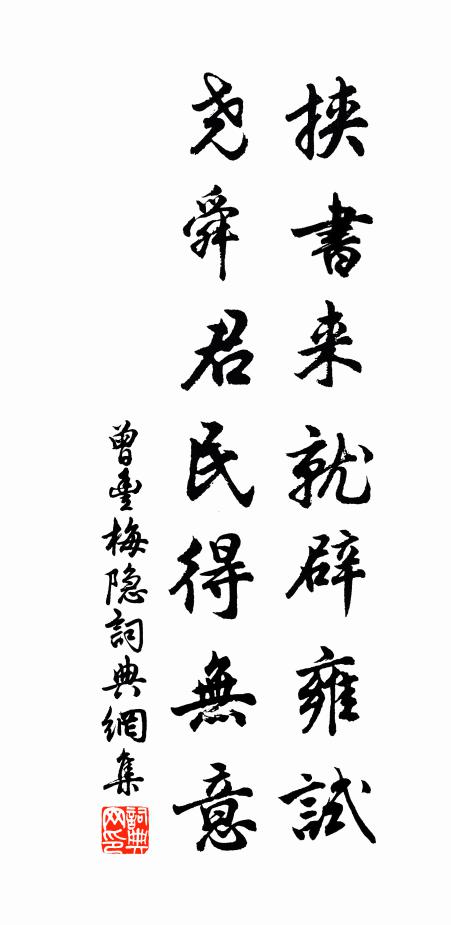 挾書来就辟雍試
尧舜君民得無意
曾豐梅隐詞典網集
詞典网印